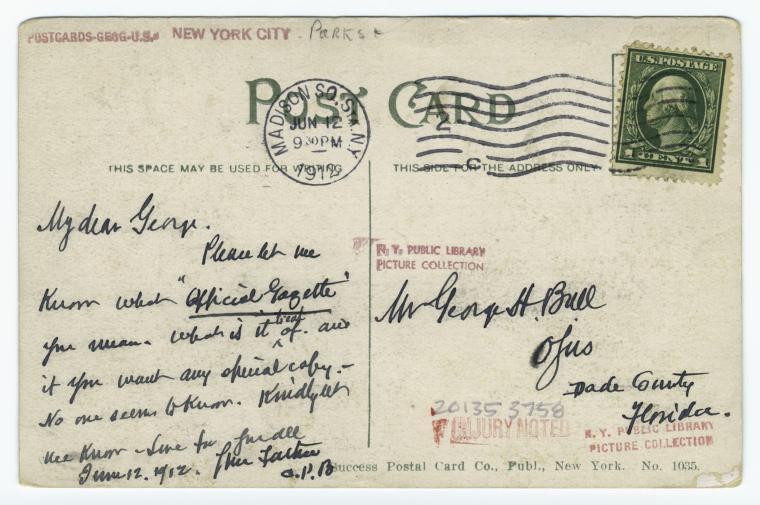 POSTCARDS-GEOG-U.S. NEW YORK CITY - Parks
POST CARD
MADISON SQ. STA. N.Y.
JUN 12
9 30 PM
1912
2
C
U.S. POSTAGE
1 CENT 1
THIS SPACE MAY BE USED FOR WRITING
THIS SIDE FOR THE ADDRESS ONLY
My dear George.
Please let me
Know what "Official Gazette"
you mean. What is it treat of. and
if you want any special copy.-
No one seems to know. Kindly let
me Know - Love for you all
June 12. 1912. Your Father
O.P.B
N. Y. PUBLIC LIBRARY
PICTURE COLLECTION
Mr George H. Bull
Ojus
Dade County
Florida.
20135 3758
INJURY NOTED
N. Y. PUBLIC LIBRARY
PICTURE COLLECTION
Success Postal Card Co., Publ., New York. No. 1035.